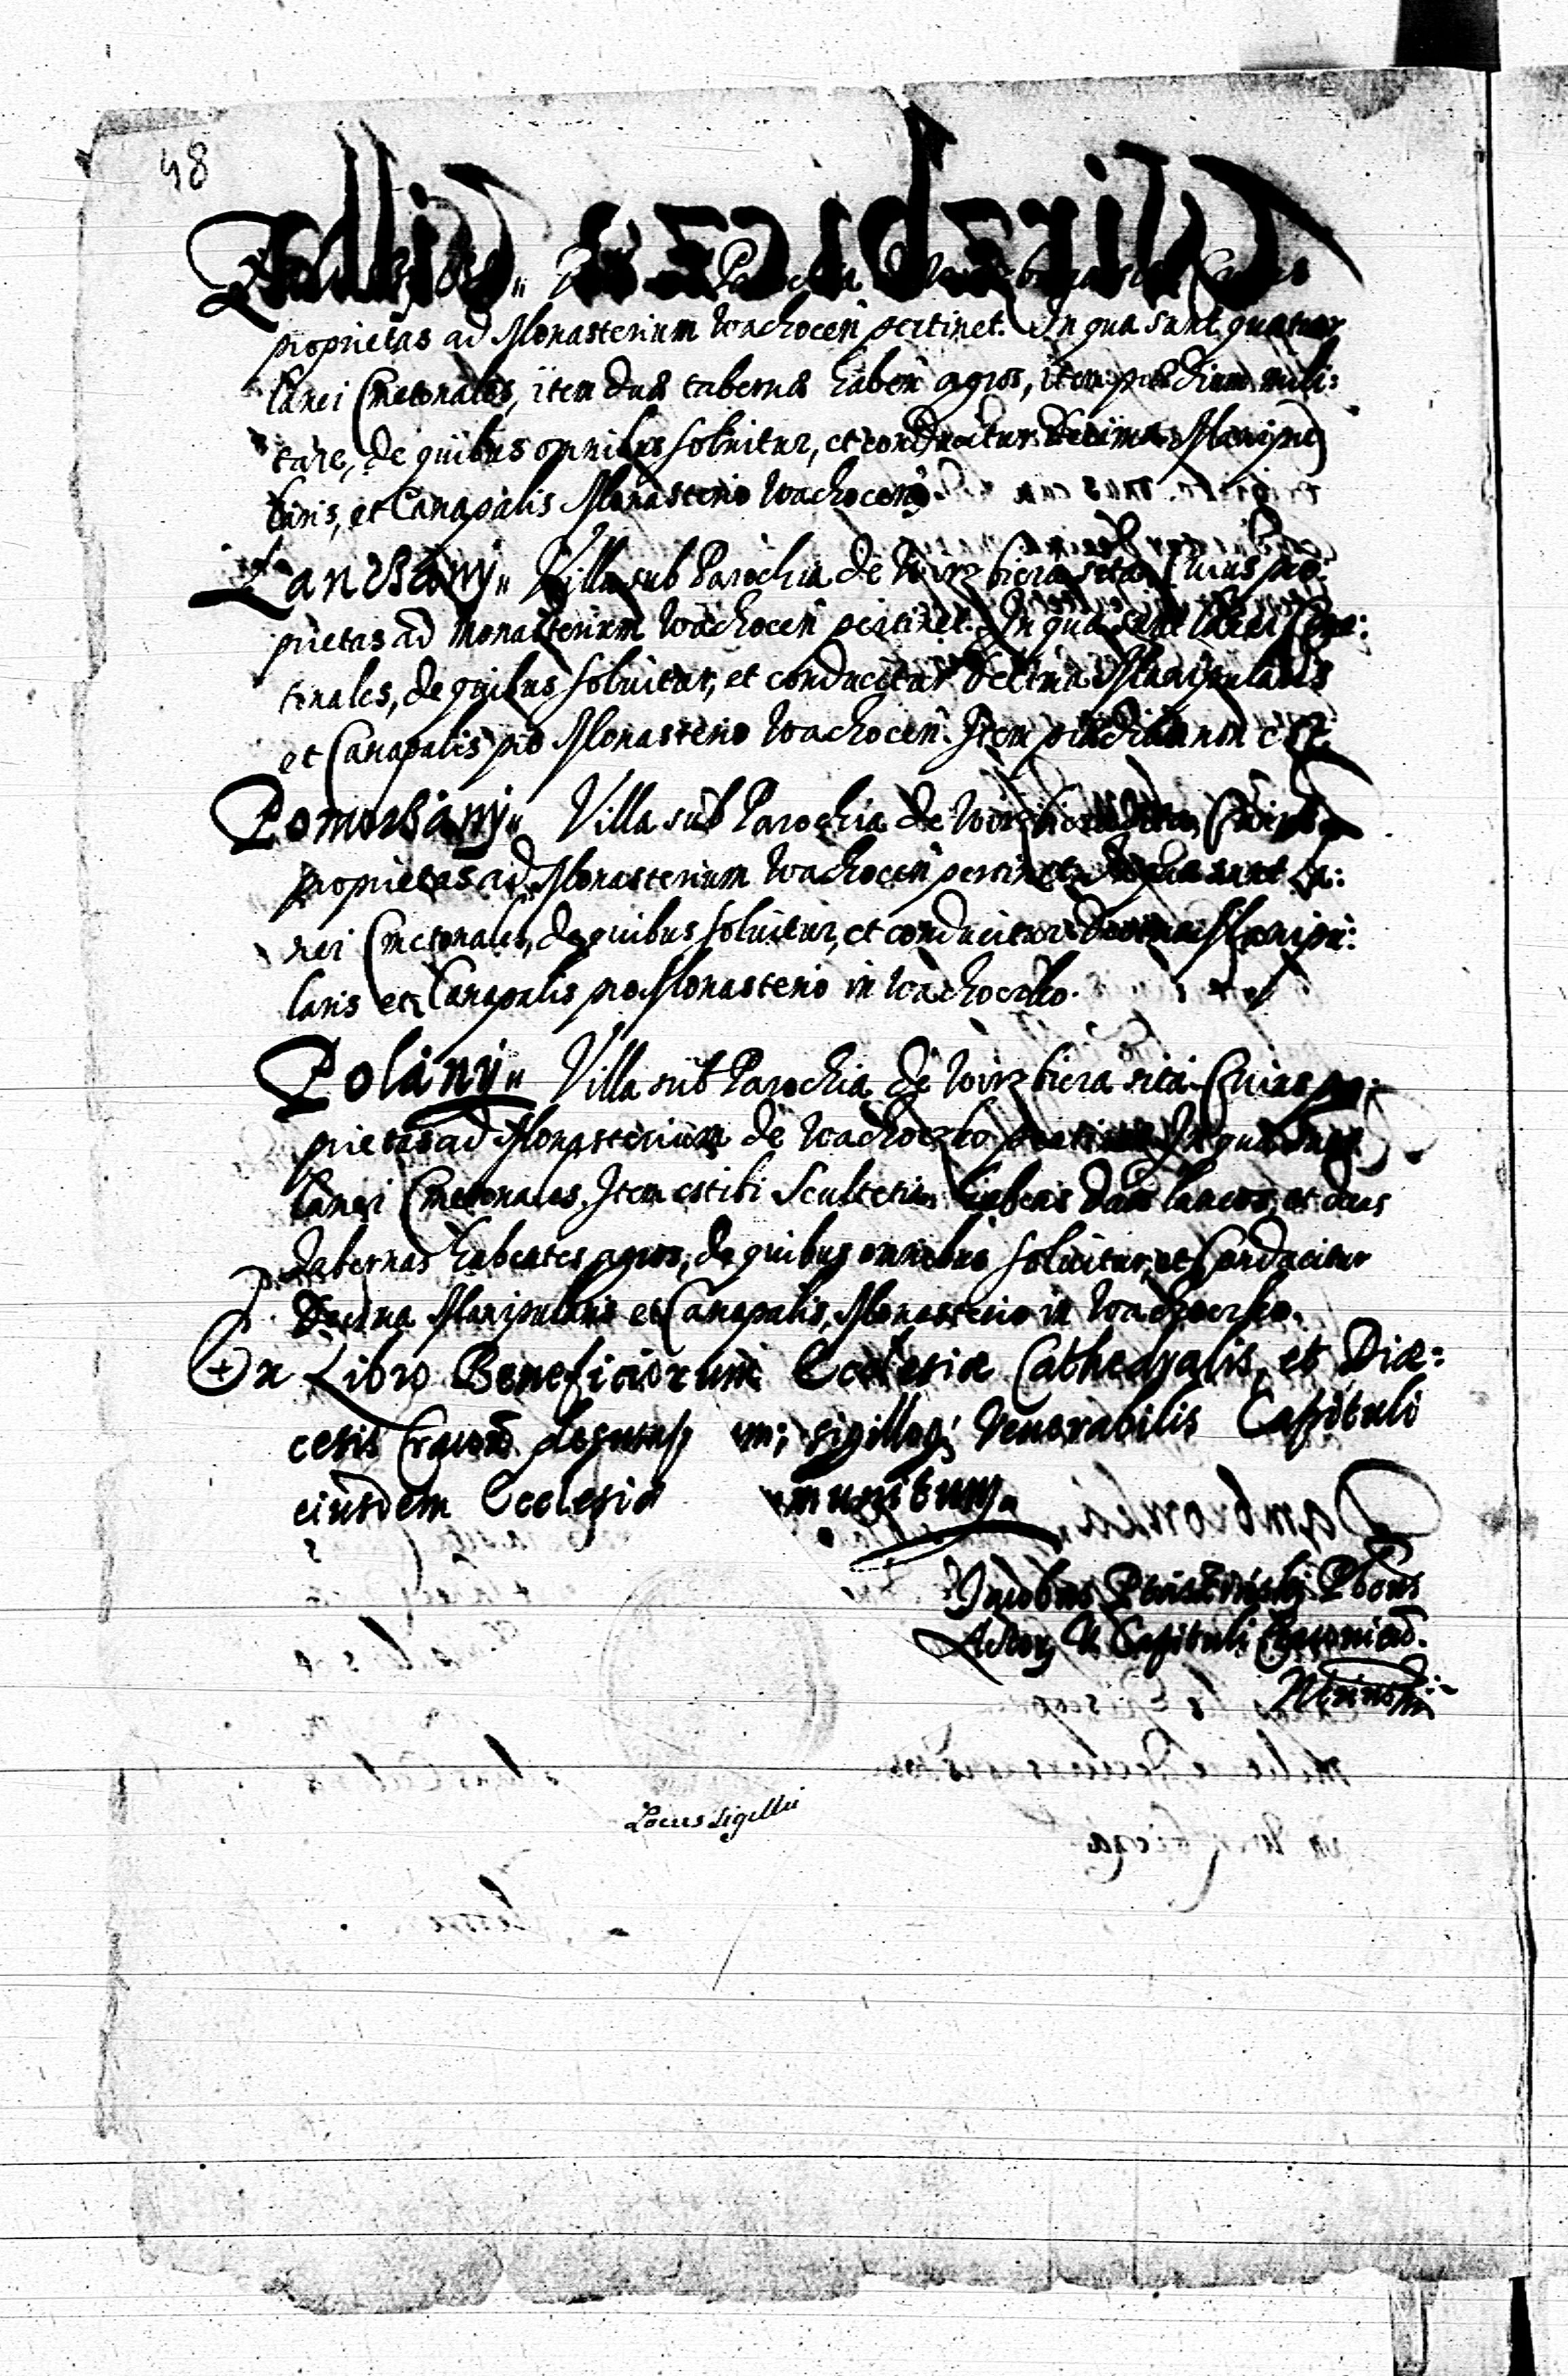 48
proprietas ad Monasterium Wachocen̄ pertinet. In qua sunt quatuor
lanei Cmetonales, item duæ tabernæ haben̄ agros, item prædium mili:
tare, de quibus omnibus soluitur, et conducitur decima Manipu
laris, et Canapalis Monasterio Wachocen̄.
Villa sub Parochia de Wirzbicza sita. Cuius pro:
prietas ad Monasterium Wachocen̄ pertinet. In qua sunt lanei Cme:
tonales, de quibus soluitur, et conducitur Decima Manipularis
et Canapalis pro Monasterio Wachocen̄. Item prædium non est.
Pomorzany" Villa sub Parochia de Wirzbicza sita, Cuius
proprietas ad Monasterium Wachocen̄ pertinet. In qua sunt la:
nei Cmetonales, de quibus soluitur, et conducitur Decima Manipu:
laris et Canapalis pro Monasterio in Wachoczko.
Polány" Villa sub Parochia de Wirzbicza sita. Cuius pro:
prietas ad Monasterium de Wachoczko pertinet. In qua sunt
lanei Cmetonales. Item est ibi Scultetia habens duos laneos, et duas
Tabernas habentes agros, de quibus omnibus soluitur, et Conducitur
Decima Manipularis et Canapalis, Monasterio in Wachoczko.
Ex Libro Beneficiorum Ecclesiæ Cathedralis, et Diæ:
cesis Cracouiē sigilloq; Venerabilis Capituli
eiusdem Ecclesiæ munitum.
Jacobus
V. Capituli
Locus Sigilli